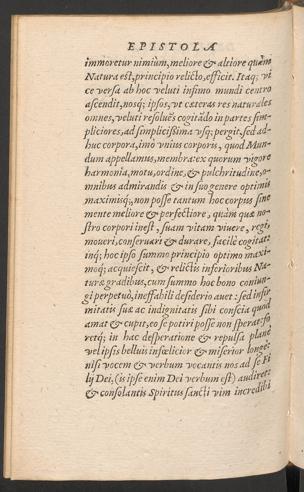 EPISTOLA
immoretur nimium, meliore & altiore quàm
Natura est, principio relicto, efficit. Itaq; vi
ce versa ab hoc veluti infimo mundi centro
ascendit, nosq; ipsos, vt cæteras res naturales
omnes, veluti resolués cogitádo in partes sim-
pliciores, ad simplicissima vsq; pergit, sed ad-
huc corpora, imò vnius corporis, quod Mun-
dum appellamus, membra: ex quorum vigore
harmonia, motu, ordine, & pulchritudine, o-
mnibus admirandis & in suo genere optimis
maximisq;, non posse tantum hoc corpus sine
mente meliore & perfectiore, quàm quæ no-
stro corpori inest, suam vitam viuere, regi,
moueri, conseruari & durare, facilè cogitat:
inq; hoc ipso summo principio optimo maxi-
moq; acquiescit, & relictis inferioribus Na-
turæ gradibus, cum summo hoc bono coniun-
gi perpetuò, ineffabili desiderio auet: sed infir-
mitatis suæ ac indignitatis sibi conscia quod
amat & cupit, eo se potiri posse non sperat: so
retq; in hac desperatione & repulsa planè
vel ipsis belluis infœlicior & miserior longè:
nisi vocem & verbum vocantis nos ad se Fi
lij Dei, (is ipse enim Dei verbum est) audiret:
& consolantis Spiritus sancti vim incredibi